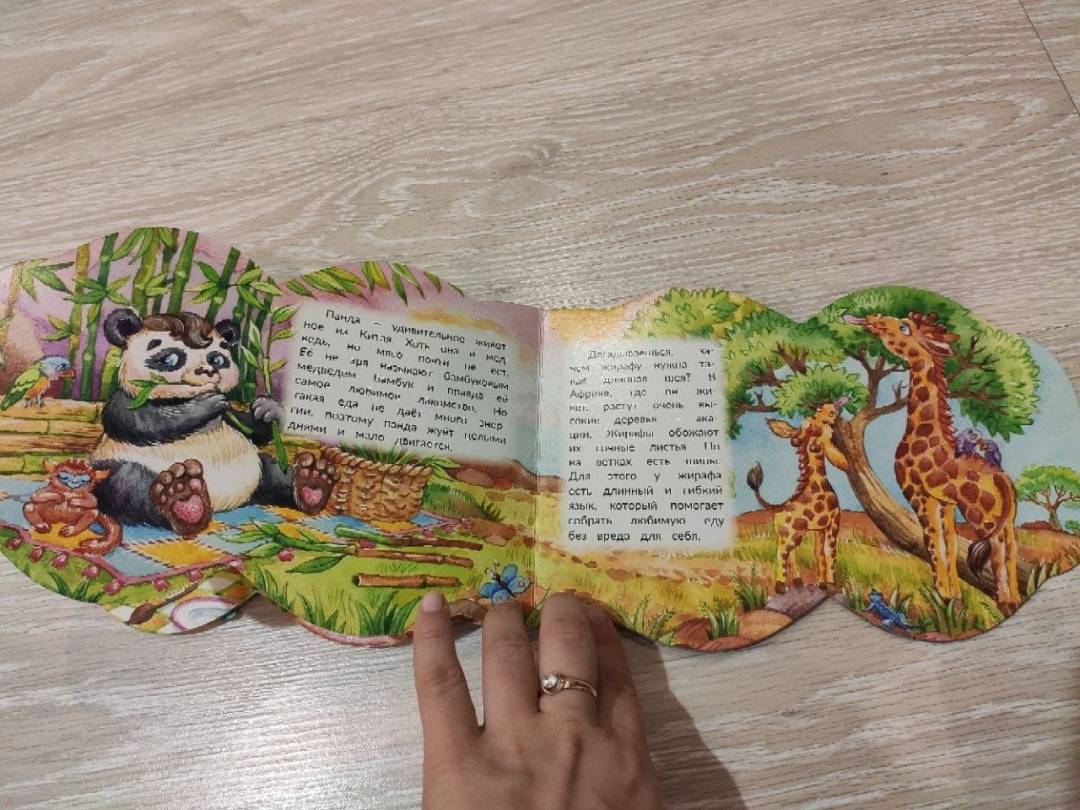 Панда – удивительное живот
ное из Китая. Хоть она и мед
ведь, но мясо почти не ест.
Её не зря называют бамбуковым
медведем. Бамбук и правда её
самое любимое лакомство. Но
такая еда не даёт много энер
гии, поэтому панда жуёт целыми
днями и мало двигается.
Догадываешься, за-
чем жирафу нужна та-
кая длинная шея? В
Африке, где он жи-
вёт, растут очень вы-
сокие деревья – ака
ции. Жирафы обожают
их сочные листья. Но
на ветках есть шипы.
Для этого у жирафа
есть длинный и гибкий
язык, который помогает
собрать любимую еду
без вреда для себя.